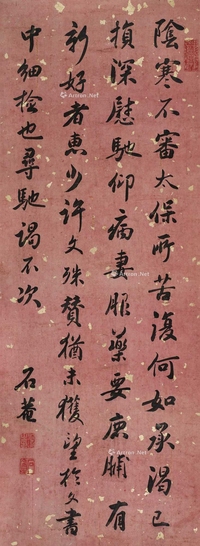 陰寒不審太保所苦復何如承渴已
損深慰馳仰病妻服藥要鹿脯有
新好者惠少許文殊贊猶未獲望於文書
中細檢也尋馳謁不次
石菴